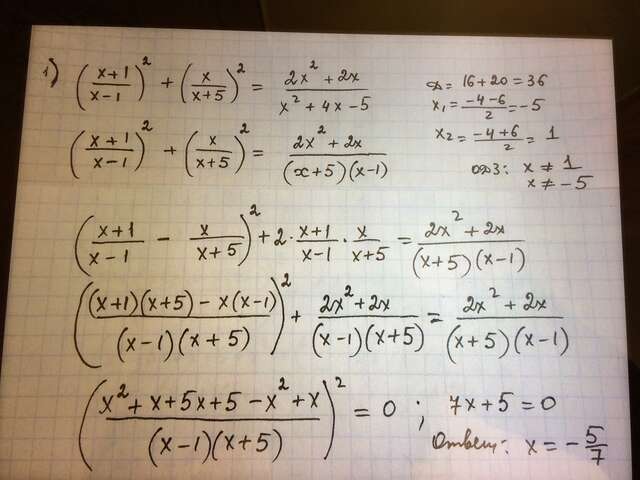 1) ((x+1)/(x-1))² + (x/(x+5))² = (2x² + 2x)/(x² + 4x - 5)
D = 16 + 20 = 36
x₁ = (-4-6)/2 = -5
x₂ = (-4+6)/2 = 1
((x+1)/(x-1))² + (x/(x+5))² = (2x² + 2x)/((x+5)(x-1))
ОДЗ: x ≠ 1
x ≠ -5
((x+1)/(x-1) - x/(x+5))² + 2·(x+1)/(x-1)·x/(x+5) = (2x² + 2x)/((x+5)(x-1))
(((x+1)(x+5) - x(x-1))/((x-1)(x+5)))² + (2x² + 2x)/((x-1)(x+5)) = (2x² + 2x)/((x+5)(x-1))
((x² + x + 5x + 5 - x² + x)/((x-1)(x+5)))² = 0 ; 7x + 5 = 0
Ответ: x = -5/7